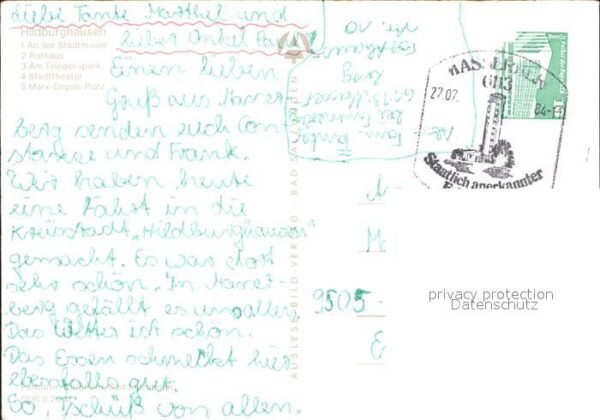 Liebe Tante Marthel und
lieber Onkel Paul!
Hildburghausen
1 An der Stadtmauer
2 Rathaus
3 Am Friedenspark
4 Stadttheater
5 Marx-Engels-Platz
Einen lieben
Gruß aus Masser-
berg senden euch Con-
stanze und Frank.
Wir haben heute
eine Fahrt in die
Kreisstadt „Hildburghausen"
gemacht. Es war dort
sehr schön. In Masser-
berg gefällt es uns allen.
Das Wetter ist schön.
Das Essen schmeckt hier
ebenfalls gut.
So, Tschüß von allen.
AUSLESE-BILD-VERLAG
BAD SALZUNGEN
MASSERBERG
6113
27.07.
84-
Staatlich anerkannter
10
9505-
privacy protection
Datenschutz